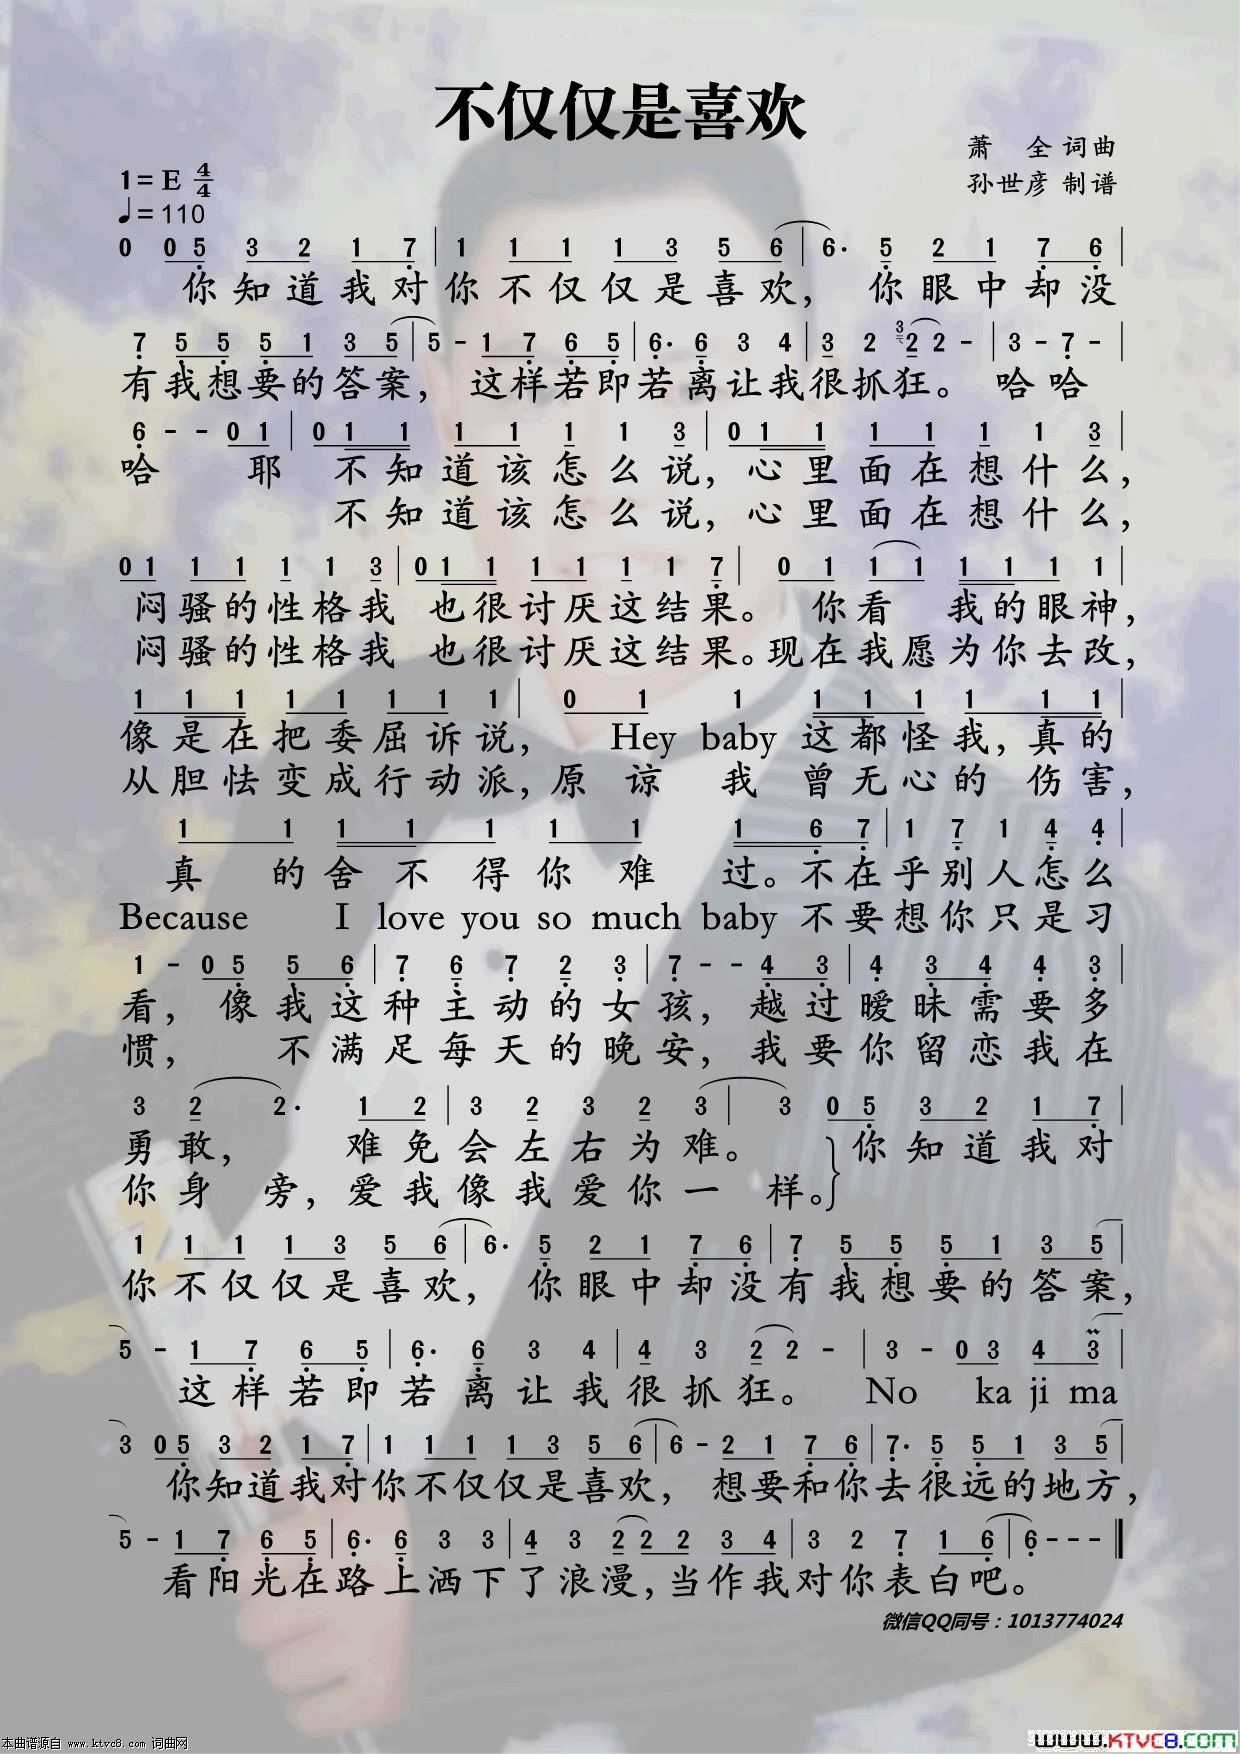 不仅仅是喜欢
萧 全 词曲
1=E 4/4
孙世彦 制谱
♩=110
0 0 5 3 2 1 7 | 1 1 1 1 3 5 6 | 6· 5 2 1 7 6 |
你知道我对你不仅仅是喜欢， 你眼中却没
7 5 5 5 1 3 5 | 5 - 1 7 6 5 | 6· 6 3 4 | 3 2 3 2 2 - | 3 - 7 - |
有我想要的答案， 这样若即若离让我很抓狂。 哈哈
6 - - 0 1 | 0 1 1 1 1 1 1 3 | 0 1 1 1 1 1 1 3 |
哈 耶 不知道该怎么说，心里面在想什么，
不知道该怎么说，心里面在想什么，
0 1 1 1 1 1 3 | 0 1 1 1 1 1 1 7 | 0 1 1 1 1 1 1 1 |
闷骚的性格我 也很讨厌这结果。 你看 我的眼神，
闷骚的性格我 也很讨厌这结果。现在我愿为你去改，
1 1 1 1 1 1 1 1 | 0 1 1 1 1 1 1 1 1 |
像是在把委屈诉说， Hey baby 这都怪我，真的
从胆怯变成行动派，原谅 我 曾无心的 伤害，
1 1 1 1 1 1 1 1 6 7 | 1 7 1 4 4 |
真 的舍不得你难 过。不在乎别人怎么
Because I love you so much baby 不要想你只是习
1 - 0 5 5 6 | 7 6 7 2 3 | 7 - - 4 3 | 4 3 4 4 3 |
看， 像我这种主动的女孩， 越过暧昧需要多
惯， 不满足每天的晚安， 我要你留恋我在
3 2 2· 1 2 | 3 2 3 2 3 | 3 0 5 3 2 1 7 |
勇敢， 难免会左右为难。 你知道我对
你身 旁，爱我像我爱你一 样。
1 1 1 1 3 5 6 | 6· 5 2 1 7 6 | 7 5 5 5 1 3 5 |
你不仅仅是喜欢， 你眼中却没有我想要的答案，
5 - 1 7 6 5 | 6· 6 3 4 | 4 3 2 2 - | 3 - 0 3 4 3 |
这样若即若离让我很抓狂。 No ka ji ma
3 0 5 3 2 1 7 | 1 1 1 1 3 5 6 | 6 - 2 1 7 6 | 7· 5 5 1 3 5 |
你知道我对你不仅仅是喜欢， 想要和你去很远的地方，
5 - 1 7 6 5 | 6· 6 3 3 | 4 3 2 2 2 3 4 | 3 2 7 1 6 | 6 - - - ‖
看阳光在路上洒下了浪漫，当作我对你表白吧。
微信QQ同号：1013774024
本曲谱源自 www.ktvc8.com 词曲网
www.KTVC8.com